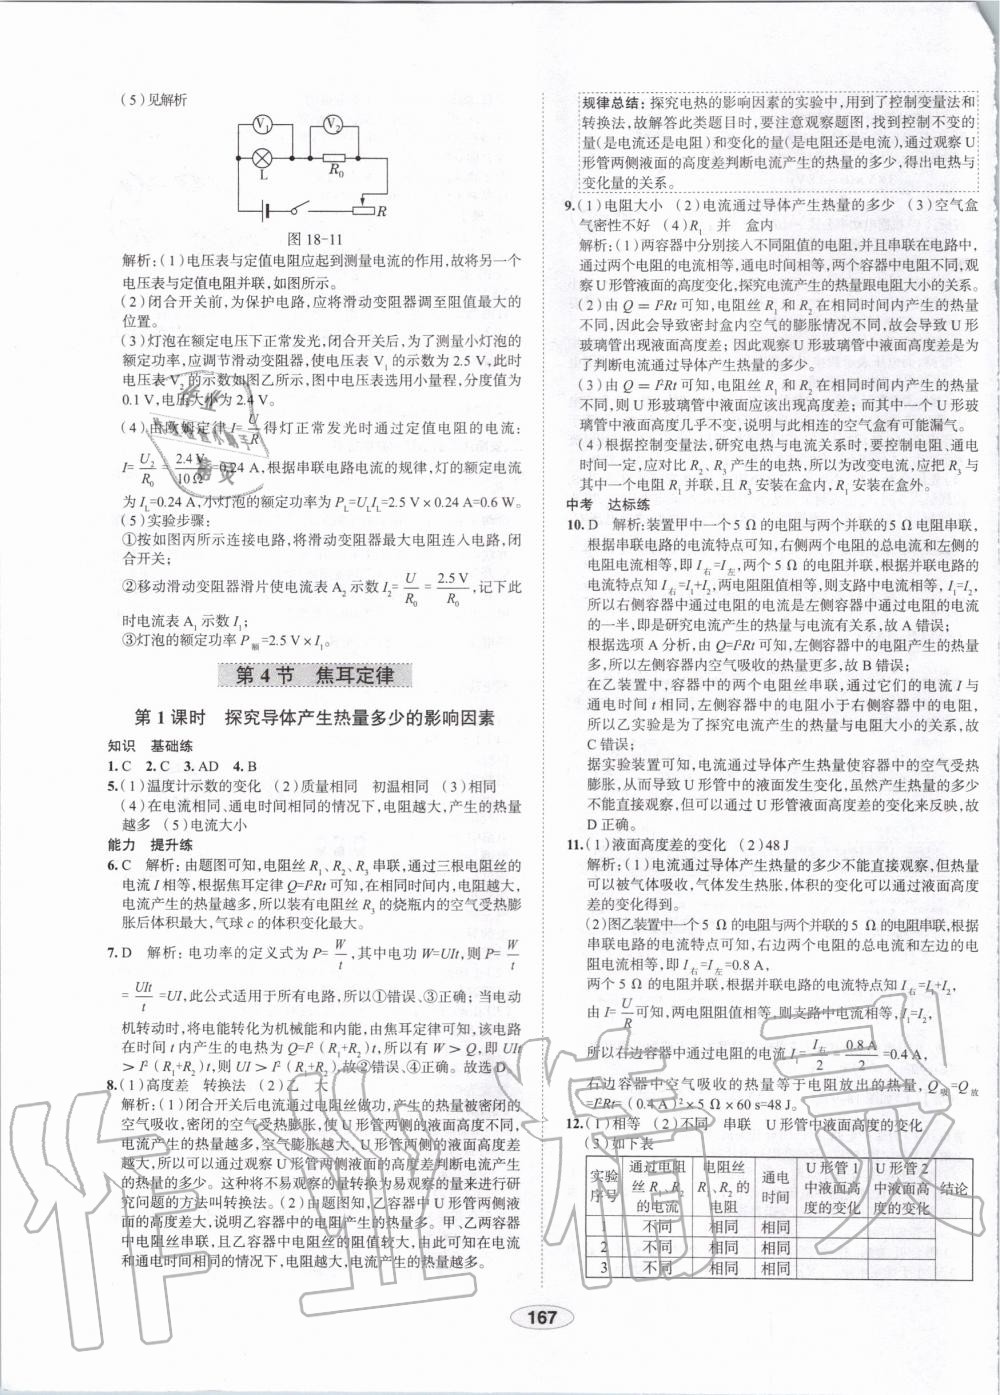 (5)见解析
V₁
V₂
L
R₀
R
图 18-11
解析:(1)电压表与定值电阻应起到测量电流的作用,故将另一个
电压表与定值电阻并联,如图所示。
(2)闭合开关前,为保护电路,应将滑动变阻器调至阻值最大的
位置。
(3)灯泡在额定电压下正常发光,闭合开关后,为了测量小灯泡的
额定功率,应调节滑动变阻器,使电压表 V₁ 的示数为 2.5 V,此时
电压表 V₂ 的示数如图乙所示,图中电压表选用小量程,分度值为
0.1 V,电压大小为 2.4 V。
(4)由欧姆定律 I=U/R 得灯正常发光时通过定值电阻的电流:
I=U₂/R₀=2.4 V/10 Ω=0.24 A,根据串联电路电流的规律,灯的额定电流
为 I_L=0.24 A,小灯泡的额定功率为 P_L=U_LI_L=2.5 V×0.24 A=0.6 W。
(5)实验步骤:
①按如图丙所示连接电路,将滑动变阻器最大电阻连入电路,闭
合开关;
②移动滑动变阻器滑片使电流表 A₂ 示数 I₂=U/R₀=2.5 V/R₀,记下此
时电流表 A₁ 示数 I₁;
③灯泡的额定功率 P额=2.5 V×I₁。
第 4 节 焦耳定律
第 1 课时 探究导体产生热量多少的影响因素
知识 基础练
1.C 2.C 3.AD 4.B
5.(1)温度计示数的变化 (2)质量相同 初温相同 (3)相同
(4)在电流相同、通电时间相同的情况下,电阻越大,产生的热量
越多 (5)电流大小
能力 提升练
6.C 解析:由题图可知,电阻丝 R₁、R₂、R₃ 串联,通过三根电阻丝的
电流 I 相等,根据焦耳定律 Q=I²Rt 可知,在相同时间内,电阻越大,
电流产生的热量越多,所以装有电阻丝 R₃ 的烧瓶内的空气受热膨
胀后体积最大,气球 c 的体积变化最大。
7.D 解析:电功率的定义式为 P=W/t,其中电功 W=UIt,则 P=W/t
=UIt/t=UI,此公式适用于所有电路,所以①错误、③正确;当电动
机转动时,将电能转化为机械能和内能,由焦耳定律可知,该电路
在时间 t 内产生的电热为 Q=I²(R₁+R₂)t,所以有 W>Q,即 UIt
>I²(R₁+R₂)t,则 UI>I²(R₁+R₂),故②错误、④正确。故选 D。
8.(1)高度差 转换法 (2)乙 大
解析:(1)闭合开关后电流通过电阻丝做功,产生的热量被密闭的
空气吸收,密闭的空气受热膨胀,使 U 形管两侧的液面高度不同,
电流产生的热量越多,空气膨胀越大、U 形管两侧的液面高度差
越大,所以可以通过观察 U 形管两侧液面的高度差判断电流产生
的热量的多少。这种将不易观察的量转换为易观察的量来进行研
究问题的方法叫转换法。(2)由题图知,乙容器中 U 形管两侧液
面的高度差大,说明乙容器中的电阻产生的热量多。甲、乙两容器
中电阻丝串联,且乙容器中电阻丝的阻值较大,由此可知在电流
和通电时间相同的情况下,电阻越大,电流产生的热量越多。
规律总结:探究电热的影响因素的实验中,用到了控制变量法和
转换法,故解答此类题目时,要注意观察题图,找到控制不变的
量(是电流还是电阻)和变化的量(是电阻还是电流),通过观察 U
形管两侧液面的高度差判断电流产生的热量的多少,得出电热与
变化量的关系。
9.(1)电阻大小 (2)电流通过导体产生热量的多少 (3)空气盒
气密性不好 (4)R₁ 并 盒内
解析:(1)两容器中分别接入不同阻值的电阻,并且串联在电路中,
通过两个电阻的电流相等,通电时间相等,两个容器中电阻不同,观
察 U 形管液面的高度变化,探究电流产生的热量跟电阻大小的关系。
(2)由 Q=I²Rt 可知,电阻丝 R₁ 和 R₂ 在相同时间内产生的热量
不同,因此会导致密封盒内空气的膨胀情况不同,故会导致 U 形
玻璃管出现液面高度差;因此观察 U 形玻璃管中液面高度差是为
了判断电流通过导体产生热量的多少。
(3)由 Q=I²Rt 可知,电阻丝 R₁ 和 R₂ 在相同时间内产生的热量
不同,则 U 形玻璃管中液面应该出现高度差;而其中一个 U 形玻
璃管中液面高度几乎不变,说明与此相连的空气盒有可能漏气。
(4)根据控制变量法,研究电热与电流关系时,要控制电阻、通电
时间一定,应对比 R₂、R₃ 产生的电热,所以为改变电流,应把 R₃ 与
其中一个电阻 R₁ 并联,且 R₃ 安装在盒内,R₁ 安装在盒外。
中考 达标练
10.D 解析:装置甲中一个 5 Ω 的电阻与两个并联的 5 Ω 电阻串联,
根据串联电路的电流特点可知,右侧两个电阻的总电流和左侧的
电阻电流相等,即 I右=I左,两个 5 Ω 的电阻并联,根据并联电路的
电流特点知 I右=I₁+I₂,两电阻阻值相等,则支路中电流相等,I₁=I₂,
所以右侧容器中通过电阻的电流是左侧容器中通过电阻的电流
的一半,即是研究电流产生的热量与电流有关系,故 A 错误;
根据选项 A 分析,由 Q=I²Rt 可知,左侧容器中的电阻产生的热量
多,所以左侧容器内空气吸收的热量更多,故 B 错误;
在乙装置中,容器中的两个电阻丝串联,通过它们的电流 I 与
通电时间 t 相同,左侧容器中的电阻小于右侧容器中的电阻,
所以乙实验是为了探究电流产生的热量与电阻大小的关系,故
C 错误;
据实验装置可知,电流通过导体产生热量使容器中的空气受热
膨胀,从而导致 U 形管中的液面发生变化,虽然产生热量的多少
不能直接观察,但可以通过 U 形管液面高度差的变化来反映,故
D 正确。
11.(1)液面高度差的变化 (2)48 J
解析:(1)电流通过导体产生热量的多少不能直接观察,但热量
可以被气体吸收,气体发生热胀,体积的变化可以通过液面高度
差的变化得到。
(2)图乙装置中一个 5 Ω 的电阻与两个并联的 5 Ω 的电阻串联,根据
串联电路的电流特点可知,右边两个电阻的总电流和左边的电
阻电流相等,即 I右=I左=0.8 A,
两个 5 Ω 的电阻并联,根据并联电路的电流特点知 I右=I₁+I₂,
由 I=U/R 可知,两电阻阻值相等,则支路中电流相等,I₁=I₂,
所以右边容器中通过电阻的电流 I₁=I右/2=0.8 A/2=0.4 A,
右边容器中空气吸收的热量等于电阻放出的热量,Q吸=Q放
=I²Rt=(0.4 A)²×5 Ω×60 s=48 J。
12.(1)相等 (2)不同 串联 U 形管中液面高度的变化
(3)如下表
实验序号 通过电阻丝 R₁、R₂的电流 电阻丝 R₁、R₂的电阻 通电时间 U 形管 1 中液面高度的变化 U 形管 2 中液面高度的变化 结论
1 不同 相同 相同
2 不同 相同 相同
3 不同 相同 相同
167
作业精灵